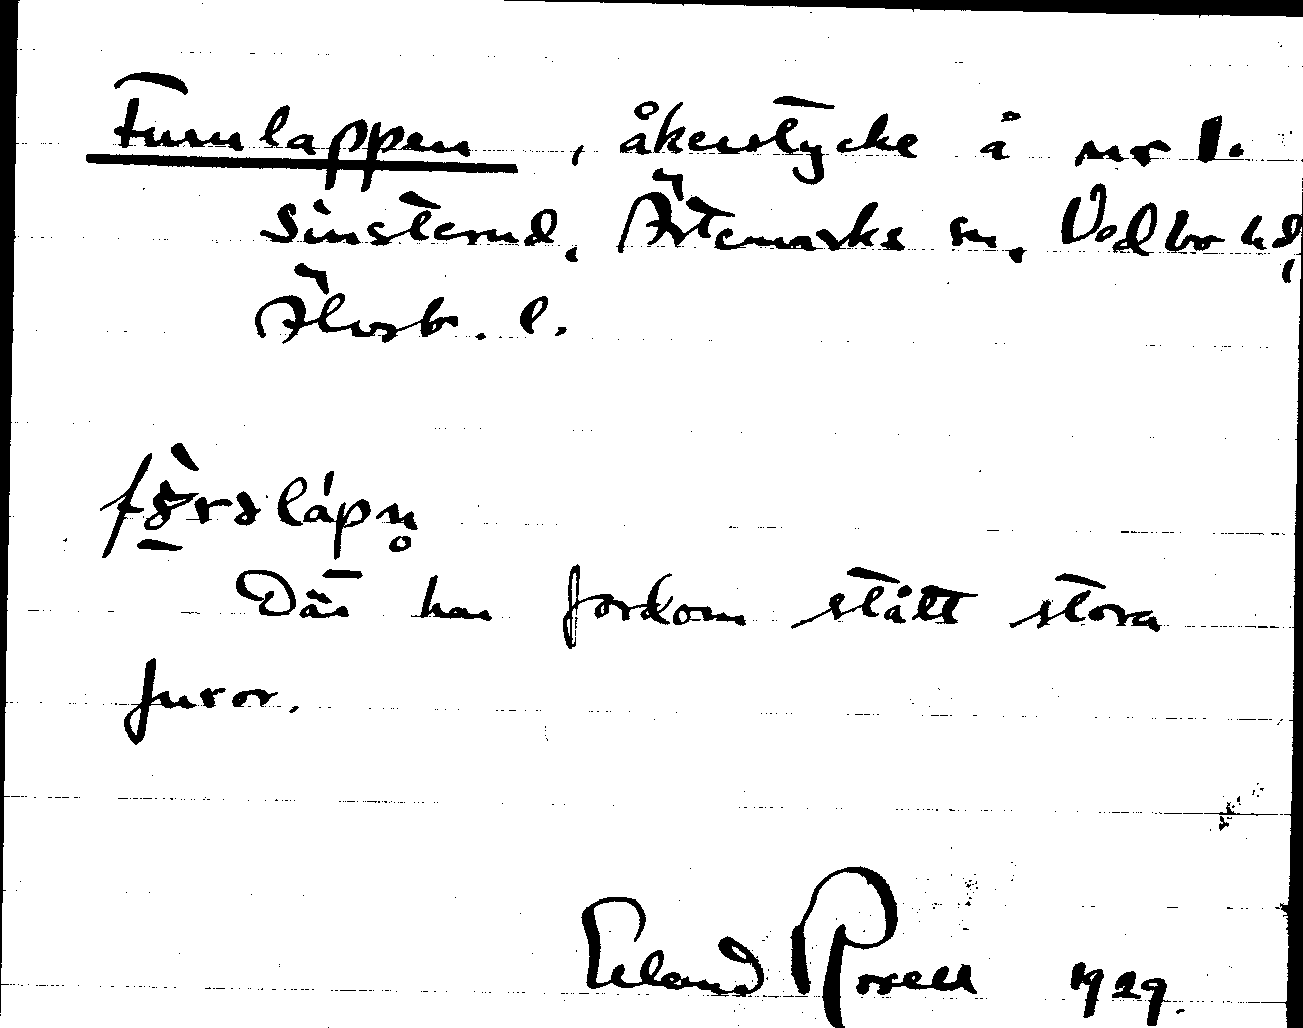 Furulappen, åkerstycke å nr 1.
Sinsterud, Ärtemarks sn, Vedbo hd,
Älvsb. l.
Där har fordom stått stora
furor.
Erland Rosell 1929.